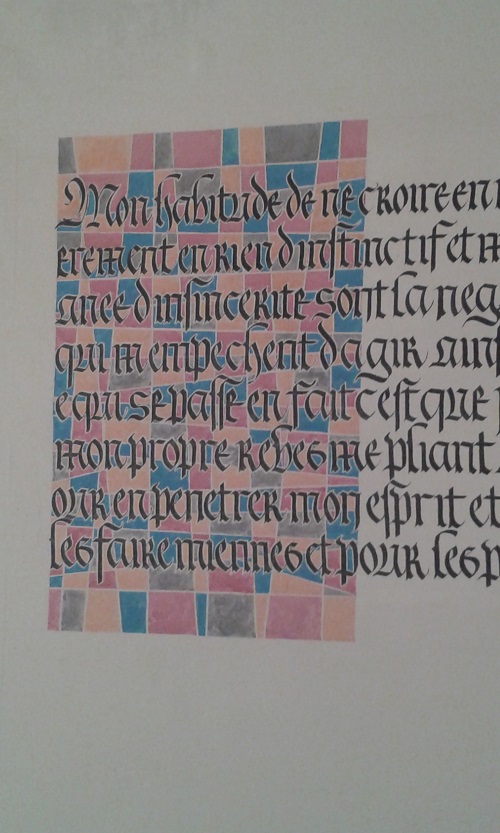 Mon habitude de ne croire en
erement en rien d instinctif et
ance d insincerite sont la neg
qui m empechent d agir ains
e qui se passe en fait c est que
mon propre me pliant
our en penetrer mon esprit et
les faire miennes et pour les p